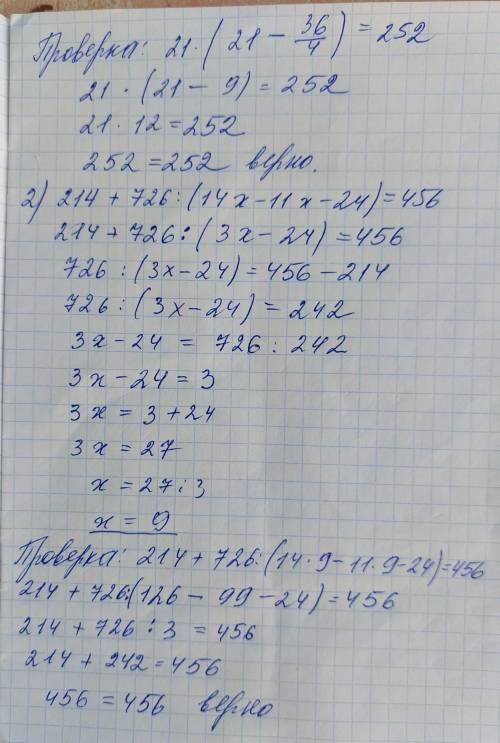 Проверка: 21 · (21 − 36/4) = 252
21 · (21 − 9) = 252
21 · 12 = 252
252 = 252 верно.
2) 214 + 726 : (14х − 11х − 24) = 456
214 + 726 : (3х − 24) = 456
726 : (3х − 24) = 456 − 214
726 : (3х − 24) = 242
3х − 24 = 726 : 242
3х − 24 = 3
3х = 3 + 24
3х = 27
х = 27 : 3
х = 9
Проверка: 214 + 726 : (14 · 9 − 11 · 9 − 24) = 456
214 + 726 : (126 − 99 − 24) = 456
214 + 726 : 3 = 456
214 + 242 = 456
456 = 456 верно